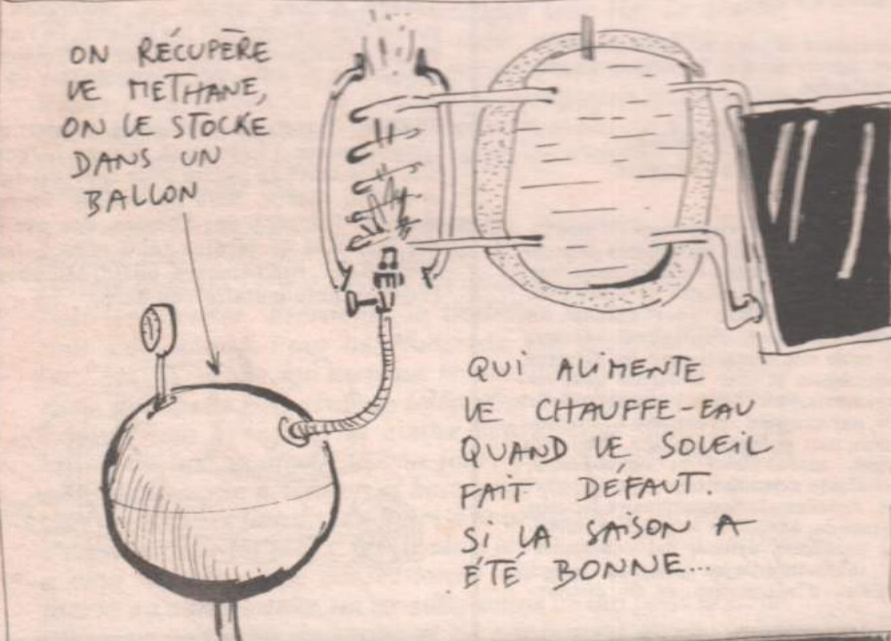 ON RÉCUPÈRE
LE METHANE,
ON LE STOCKE
DANS UN
BALLON
QUI ALIMENTE
LE CHAUFFE-EAU
QUAND LE SOLEIL
FAIT DÉFAUT.
SI LA SAISON A
ÉTÉ BONNE...